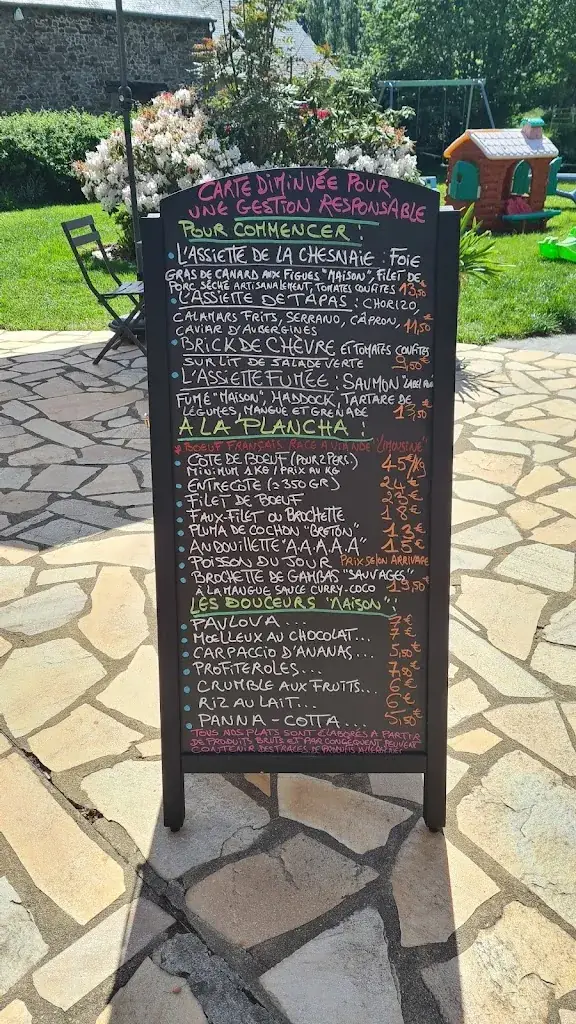 CARTE DIMINUÉE POUR
UNE GESTION RESPONSABLE
POUR COMMENCER :
L'ASSIETTE DE LA CHESNAIE : FOIE
GRAS DE CANARD AUX FIGUES "MAISON", FILET DE
PORC SÉCHÉ ARTISANALEMENT, TOMATES CONFITES 13,50
L'ASSIETTE DE TAPAS : CHORIZO,
CALAMARS FRITS, SERRANO, CÂPRON, 11,50
CAVIAR D'AUBERGINES
BRICK DE CHÈVRE ET TOMATES CONFITES
SUR LIT DE SALADE VERTE 9,50
L'ASSIETTE FUMÉE : SAUMON "LABEL
FUMÉ "MAISON", HADDOCK, TARTARE DE
LÉGUMES, MANGUE ET GRENADE 13,50
A LA PLANCHA :
* BOEUF FRANÇAIS RACE A VIANDE "LIMOUSINE"
COTE DE BOEUF (POUR 2 PERS.) 45€/KG
MINIMUM 1 KG / PRIX AU KG
ENTRECOTE (≃ 350 GR) 24€
FILET DE BOEUF 23€
FAUX-FILET OU BROCHETTE 18€
PLUMA DE COCHON "BRETON" 13€
ANDOUILLETTE "A.A.A.A.A" 15€
POISSON DU JOUR PRIX SELON ARRIVAGE
BROCHETTE DE GAMBAS "SAUVAGES"
À LA MANGUE SAUCE CURRY-COCO 19,50€
LES DOUCEURS "MAISON" :
PAVLOVA... 7€
MOELLEUX AU CHOCOLAT... 7€
CARPACCIO D'ANANAS... 5,50€
PROFITEROLES... 7,50€
CRUMBLE AUX FRUITS... 6€
RIZ AU LAIT... 6€
PANNA-COTTA... 5,50€
TOUS NOS PLATS SONT ÉLABORÉS A PARTIR
DE PRODUITS BRUTS ET PAR CONSÉQUENT PEUVENT
CONTENIR DES TRACES DE PRODUITS ALLERGÈNES